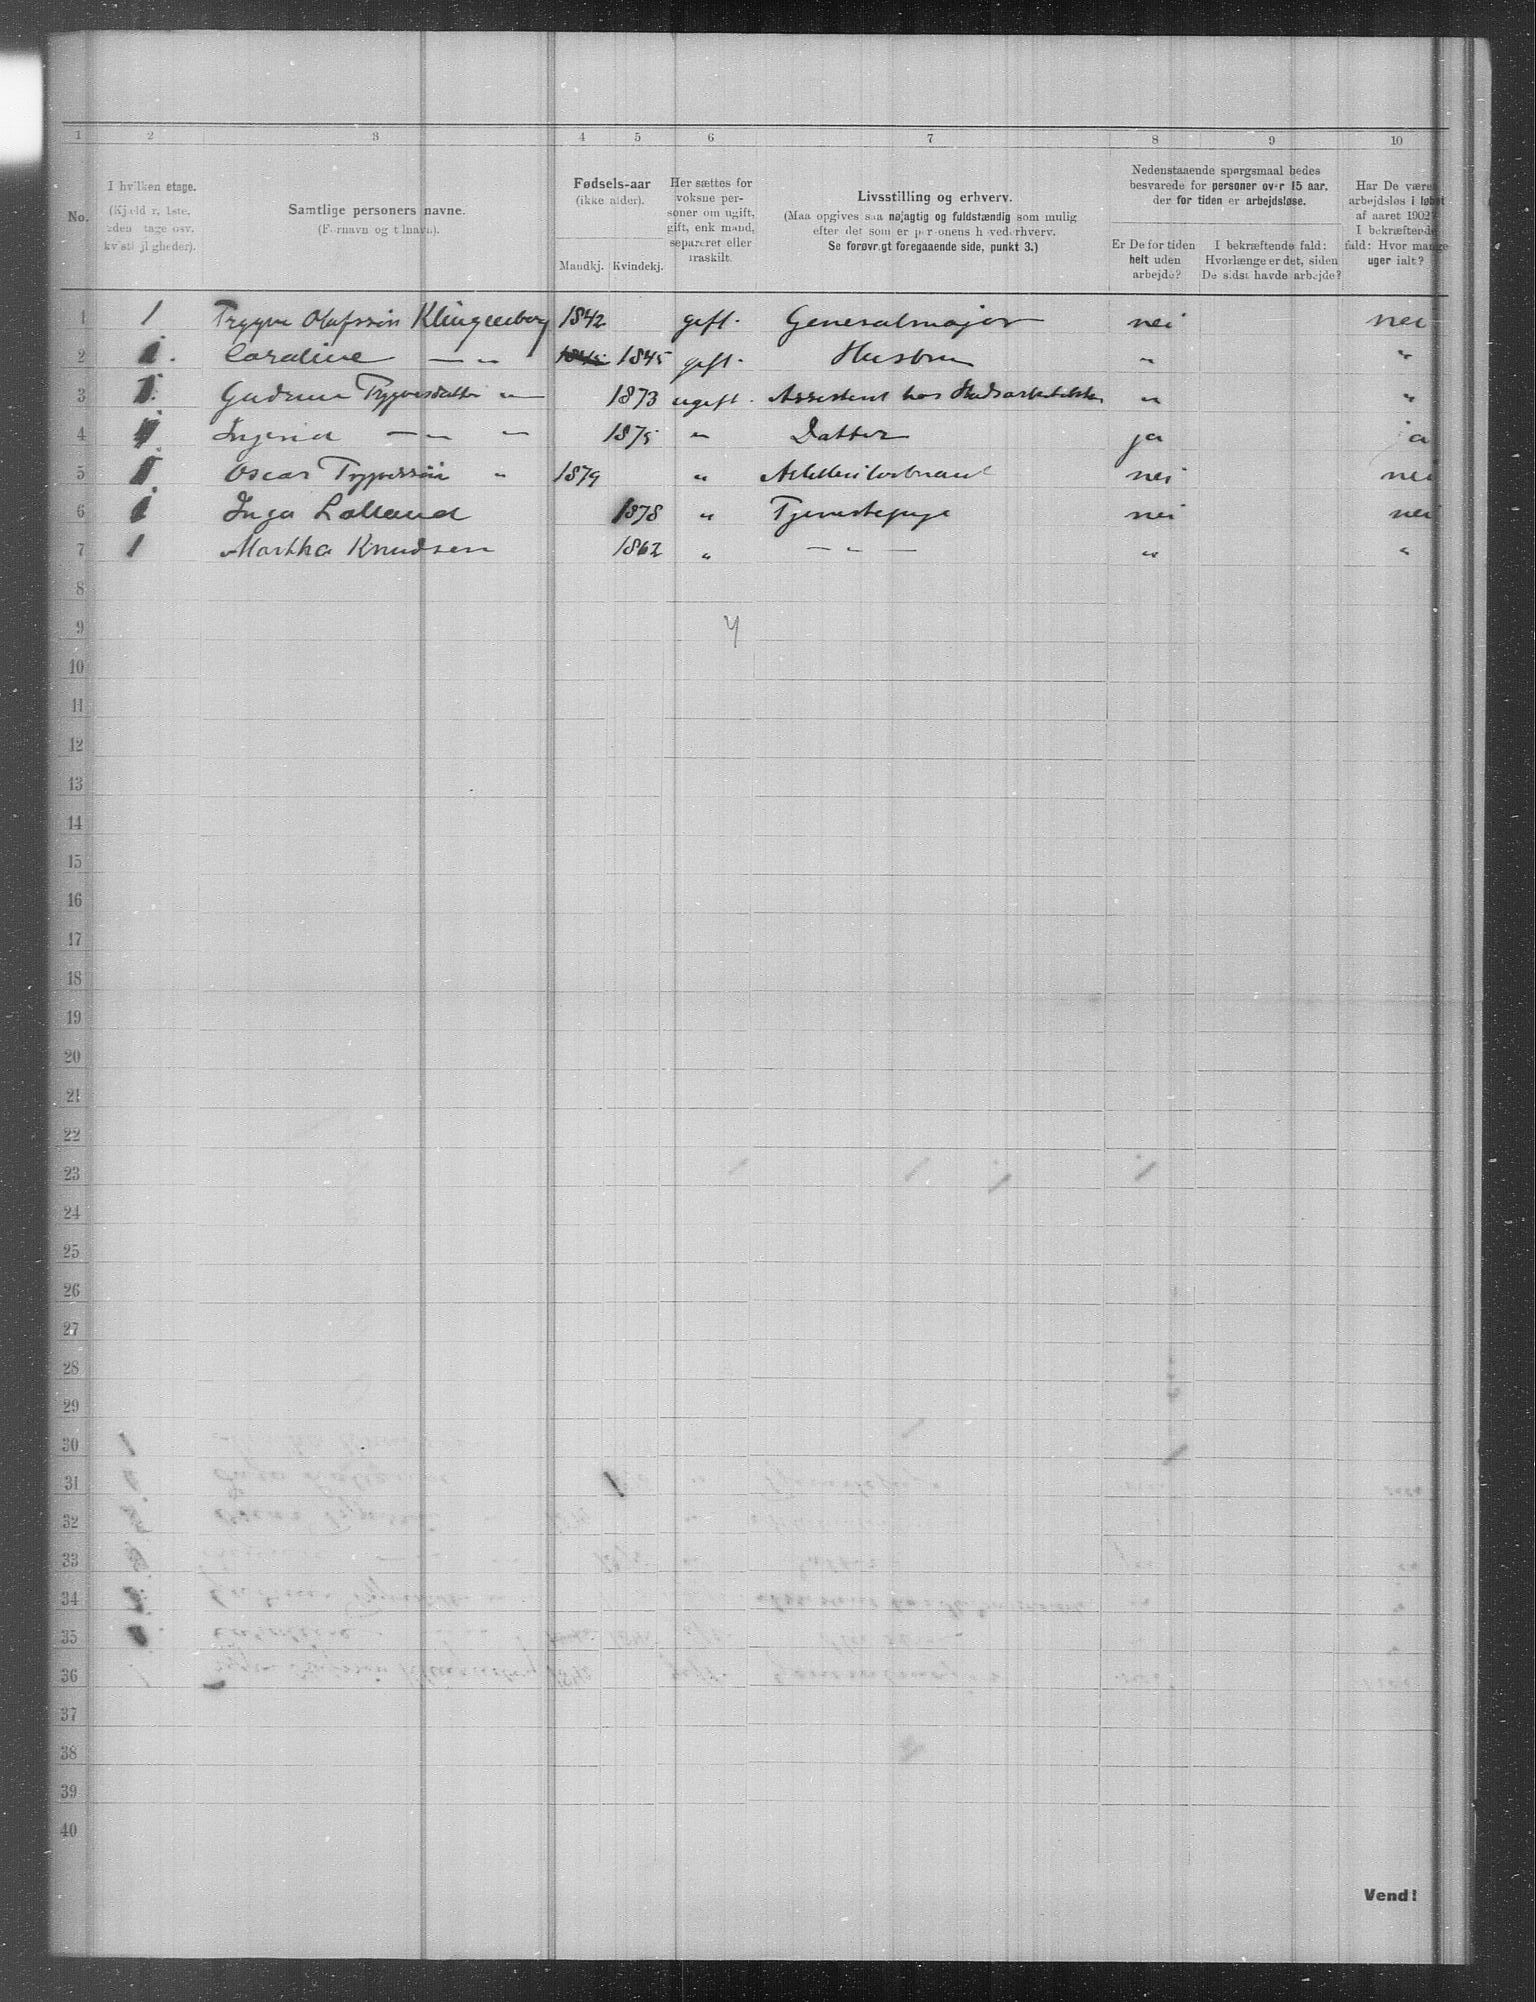 1 2 3 4 5 6 7 8 9 10
No.
I hvilken etage.
(Kjælder, 1ste, 2den etage osv. kvistleiligheder).
Samtlige personers navne.
(Fornavn og tilnavn).
Fødsels-aar
(ikke alder).
Mandkj. Kvindekj.
Her sættes for voksne personer om ugift, gift, enkemand, separeret eller fraskilt.
Livsstilling og erhverv.
(Maa opgives saa nøjagtig og fuldstændig som mulig
efter det som er personens hovederhverv.
Se forøvrigt foregaaende side, punkt 3.)
Nedenstaaende spørgsmaal bedes
besvarede for personer over 15 aar,
der for tiden er arbejdsløse.
Er De for tiden
helt uden
arbejde?
I bekræftende fald:
Hvorlænge er det, siden
De sidst havde arbejde?
Har De været
arbejdsløs i løbet
af aaret 1902?
I bekræftende
fald: Hvor mange
uger ialt?
1 1 Trygve Olafssøn Klingenberg 1842 gift. Generalmajor nei nei
2 1. Caroline — " — 1845 1845 gift. Husbru " "
3 1. Gudrun Trygvesdatter — " — 1873 ugift. Assistent hos Stadsarkitekten " "
4 1 Ingerid — " — " — 1875 " Datter ja ja
5 1 Oscar Trygvessøn " 1879 " nei nei
6 1 Inga Lolland 1878 " Tjenestepige nei nei
7 1 Martha Knudsen 1862 " — " — " "
8
9
10
11
12
13
14
15
16
17
18
19
20
21
22
23
24
25
26
27
28
29
30
31
32
33
34
35
36
37
38
39
40
Vend!